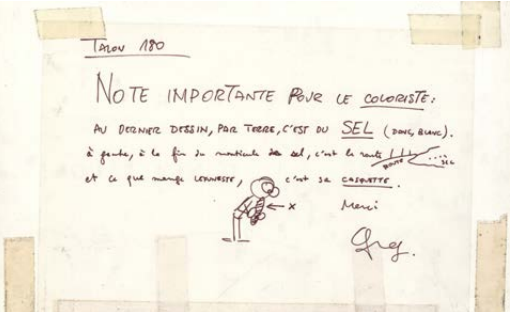 TALON 180
NOTE IMPORTANTE POUR LE COLORISTE:
AU DERNIER DESSIN, PAR TERRE, C'EST DU SEL (DONC, BLANC).
à gauche, à la fin du monticule de sel, c'est la route ROUTE SEL
et ce que mange LEHNERSTE, c'est sa CASQUETTE.
← X
Merci
Greg.